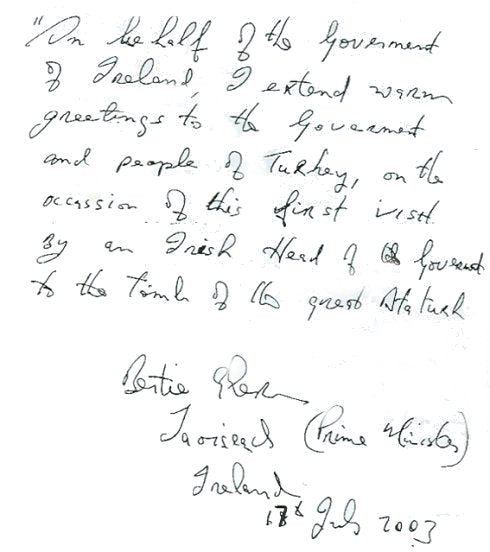 "On behalf of the Government
of Ireland, I extend warm
greetings to the Government
and people of Turkey, on the
occassion of this first visit
by an Irish Head of Government
to the tomb of the great Ataturk
Bertie Ahern
Taoiseach (Prime Minister)
Ireland
July 2003